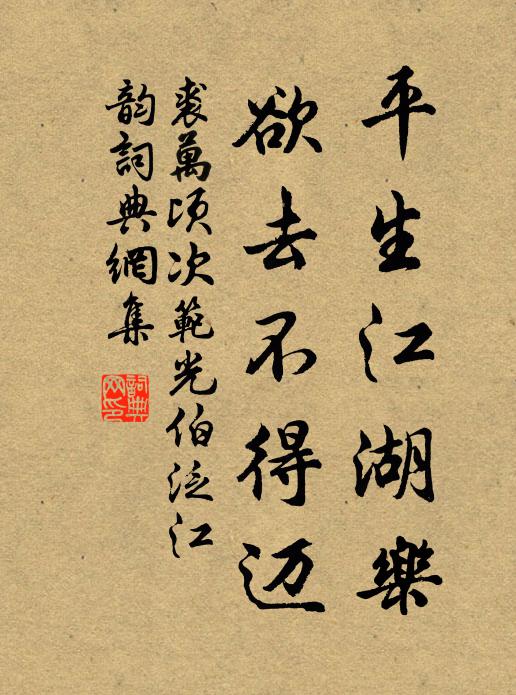 平生江湖樂
欲去不得迈
裘萬頃次範光伯泛江
韵詞典網集
詞典網印